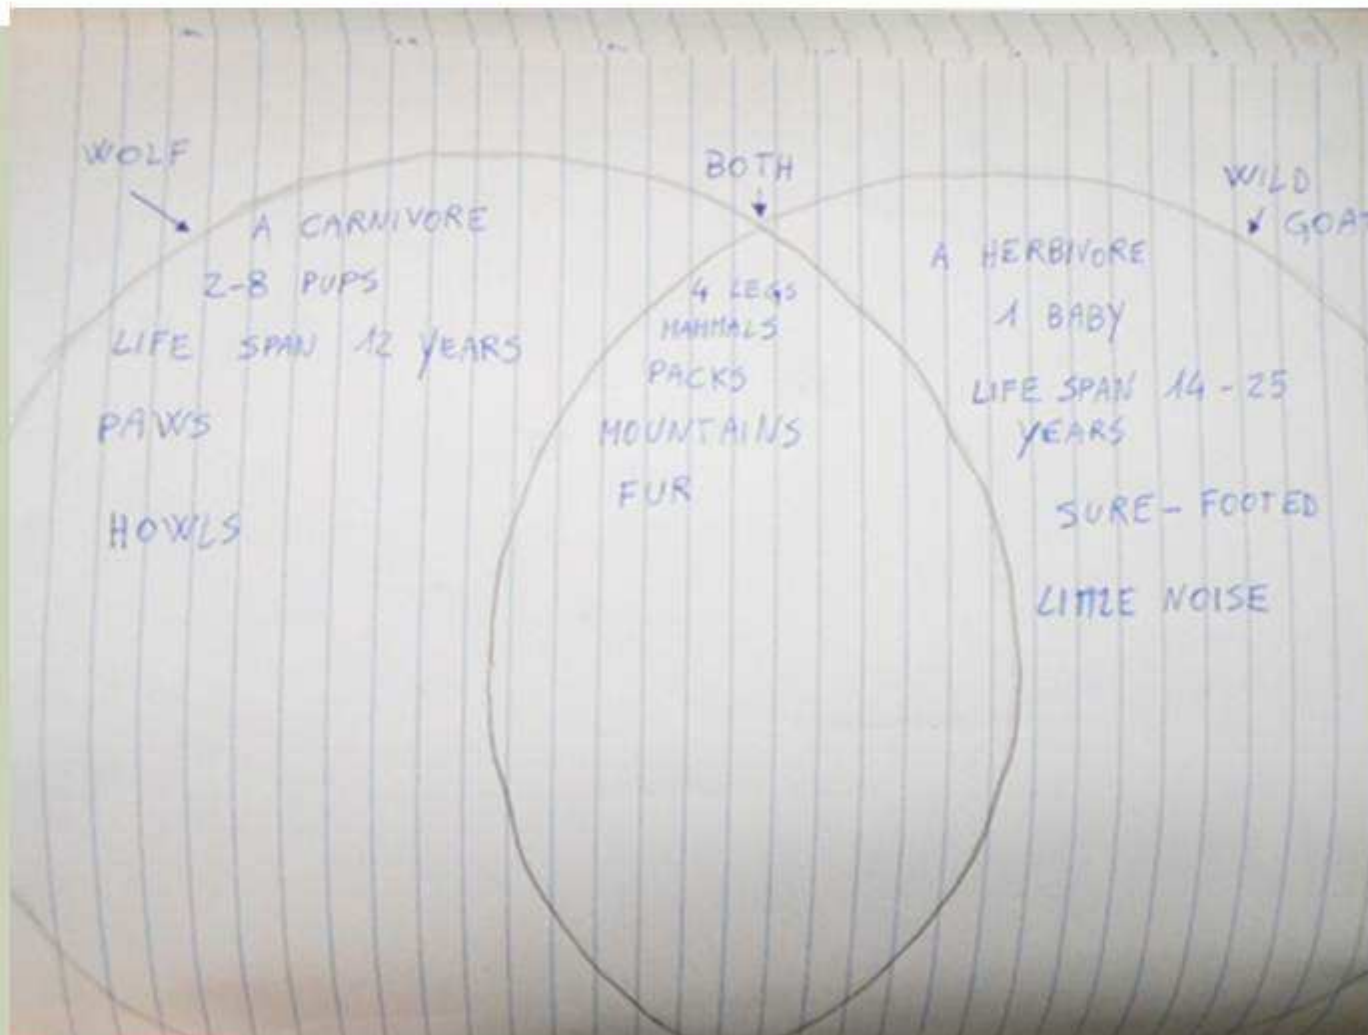 WOLF
A CARNIVORE
2-8 PUPS
LIFE SPAN 12 YEARS
PAWS
HOWLS
BOTH
4 LEGS
MAMMALS
PACKS
MOUNTAINS
FUR
WILD
GOAT
A HERBIVORE
1 BABY
LIFE SPAN 14-25
YEARS
SURE-FOOTED
LITTLE NOISE